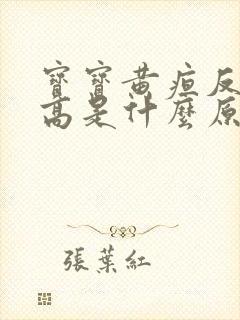 寶寶黃疸反
高是什麼原
張葉紅